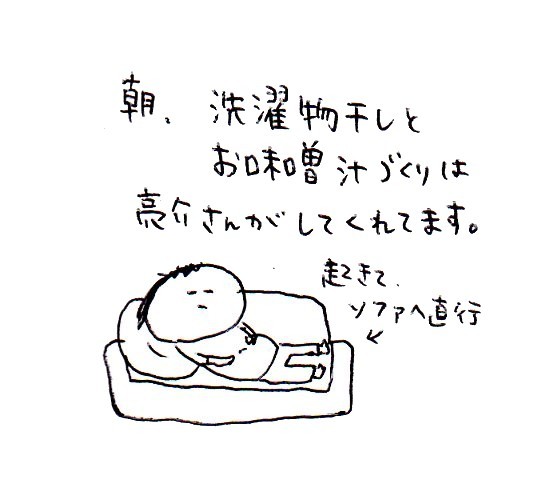 朝、洗濯物干しと
お味噌汁づくりは
亮介さんがしてくれてます。
起きて、
ソファへ直行